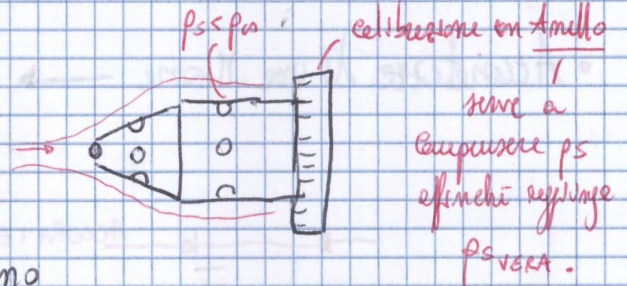 ps < p∞
calibrazione con Anello
serve a
compensare ps
affinché raggiunga
ps VERA.
no